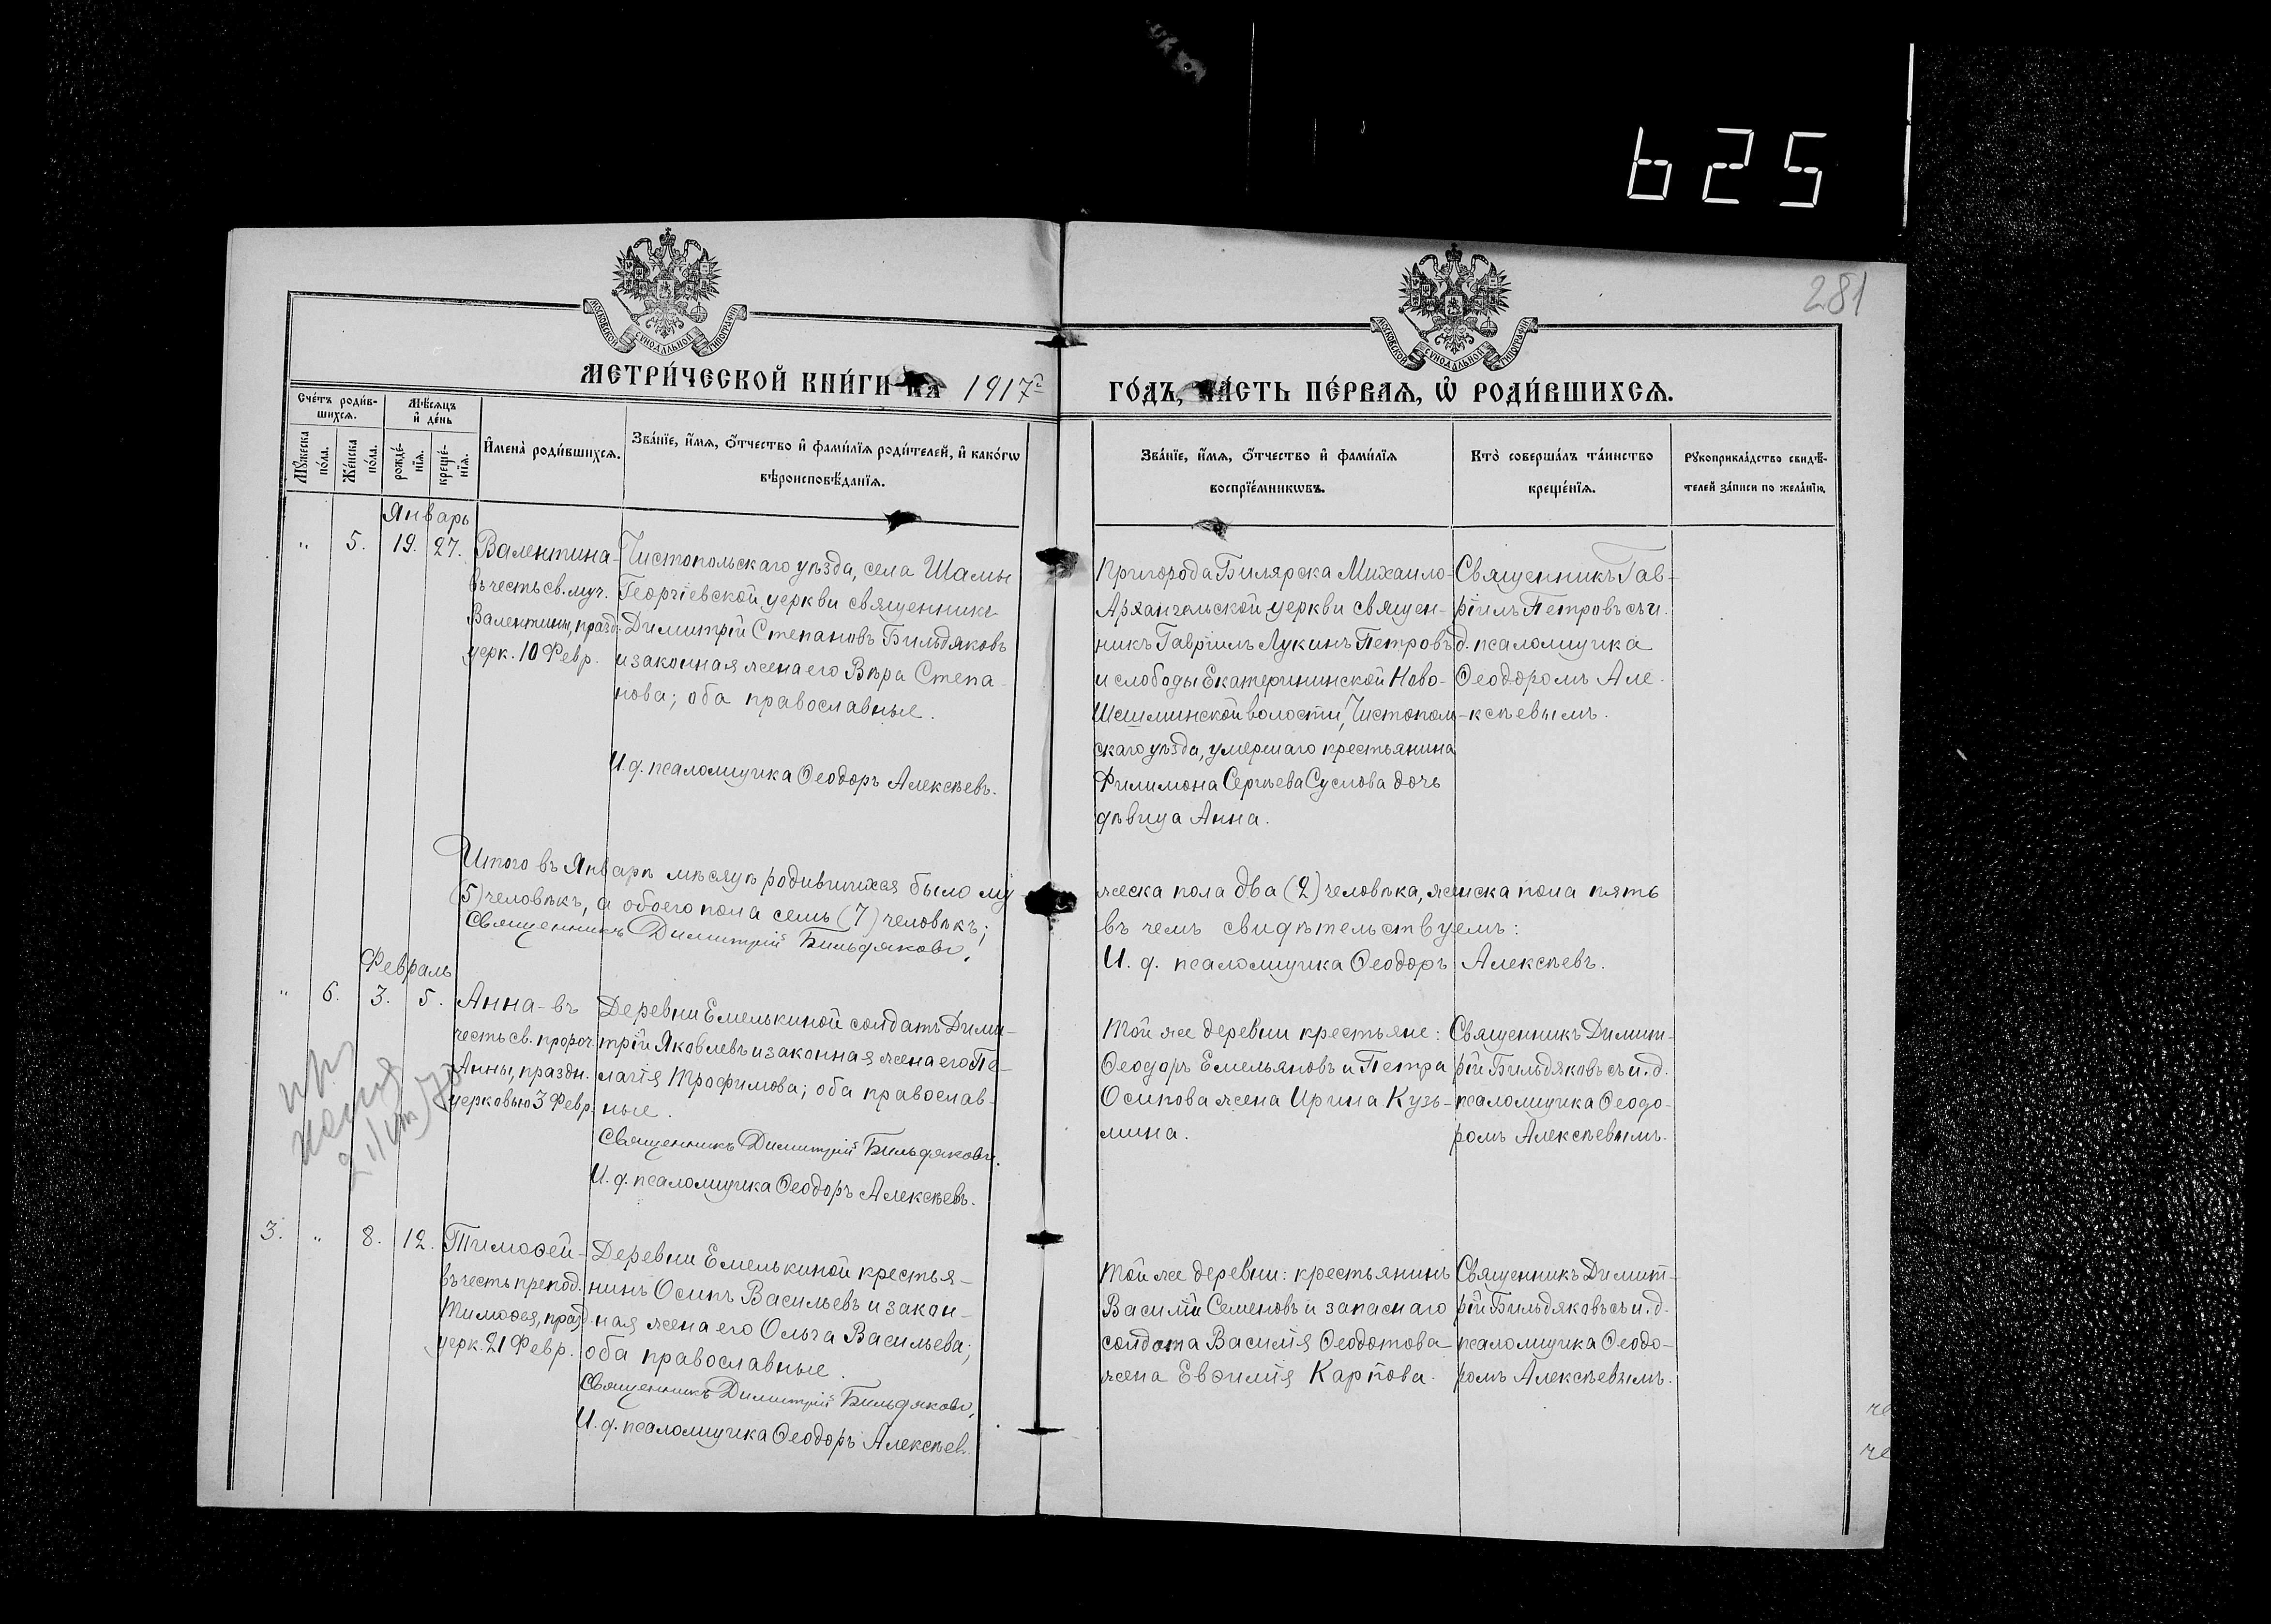 625
281
МОСКОВСКОЙ СУНОДАЛЬНОЙ ТИПОГРАФІИ
МОСКОВСКОЙ СУНОДАЛЬНОЙ ТИПОГРАФІИ
МЕТРИ́ЧЕСКОЙ КНИ́ГИ НА 1917 г.
ГО́ДЪ, ЧА́СТЬ ПЕ́РВАѦ, Ѡ҆ РОДИ́ВШИХСѦ.
Сче́тъ роди́в-
шихсѧ.
Мѣ́сѧцъ
и҆ де́нь
Мꙋ́жеска
по́ла.
Же́нска
по́ла.
рожде́-
нїѧ.
креще́-
нїѧ.
И҆мена̀ роди́вшихсѧ.
Зва́нїе, и҆́мѧ, ѻ҆́тчество и҆ фами́лїѧ роди́телей, и҆ како́гѡ
вѣроисповѣ́данїѧ.
Зва́нїе, и҆́мѧ, ѻ҆́тчество и҆ фами́лїѧ
воспрїе́мникѡвъ.
Кто̀ соверша́лъ та́инство
креще́нїѧ.
Рꙋкоприкла́дство свидѣ́-
телей за́писи по жела́нїю.
Январь
" 5. 19. 27.
Валентина-
въ честь св. муч.
Валентины, празд.
церк. 10 Февр.
Чистопольскаго уѣзда, села Шамы
Георгіевской церкви священникъ
Димитрій Степановъ Бильдяковъ
и законная жена его Вѣра Степа-
нова; оба православные.
И. д. псаломщика Ѳеодоръ Алексѣевъ.
Пригорода Билярска Михаило-
Архангельской церкви священ-
никъ Гавріилъ Лукинъ Петровъ
и слободы Екатерининской Ново-
Шешминской волости, Чистополь-
скаго уѣзда, умершаго крестьянина
Филимона Сергѣева Суслова дочь
дѣвица Анна.
Священникъ Гав-
ріилъ Петровъ съ и.
д. псаломщика
Ѳеодоромъ Але-
ксѣевымъ.
Итого въ Январѣ мѣсяцѣ родившихся было му
жеска пола два (2) человѣка, женска пола пять
(5) человѣкъ, а обоего пола семь (7) человѣкъ;
въ чемъ свидѣтельствуемъ:
Священникъ Димитрій Бильдяковъ.
И. д. псаломщика Ѳеодоръ Алексѣевъ.
Февраль
" 6. 3. 5.
Анна - въ
честь св. пророч.
Анны, праздн.
церковью 3 Февр.
Деревни Емелькиной солдатъ Дими-
трій Яковлевъ и законная жена его Пе-
лагія Трофимова; оба православ-
ные.
Священникъ Димитрій Бильдяковъ.
И. д. псаломщика Ѳеодоръ Алексѣевъ.
Той же деревни крестьяне:
Ѳеодоръ Емельяновъ и Петра
Осипова жена Ирина Кузь-
мина.
Священникъ Димит-
рій Бильдяковъ съ и. д.
псаломщика Ѳеодо-
ромъ Алексѣевымъ.
3. " 8. 12.
Тимоѳей-
въ честь препод.
Тимоѳея, празд.
церк. 21 Февр.
Деревни Емелькиной крестья-
нинъ Осипъ Васильевъ и закон-
ная жена его Ольга Васильева;
оба православные.
Священникъ Димитрій Бильдяковъ.
И. д. псаломщика Ѳеодоръ Алексѣев.
Той же деревни: крестьянинъ
Василій Семеновъ и запаснаго
солдата Василія Ѳеодотова
жена Евѳимія Карпова.
Священникъ Димит-
рій Бильдяковъ съ и. д.
псаломщика Ѳеодо-
ромъ Алексѣевымъ.